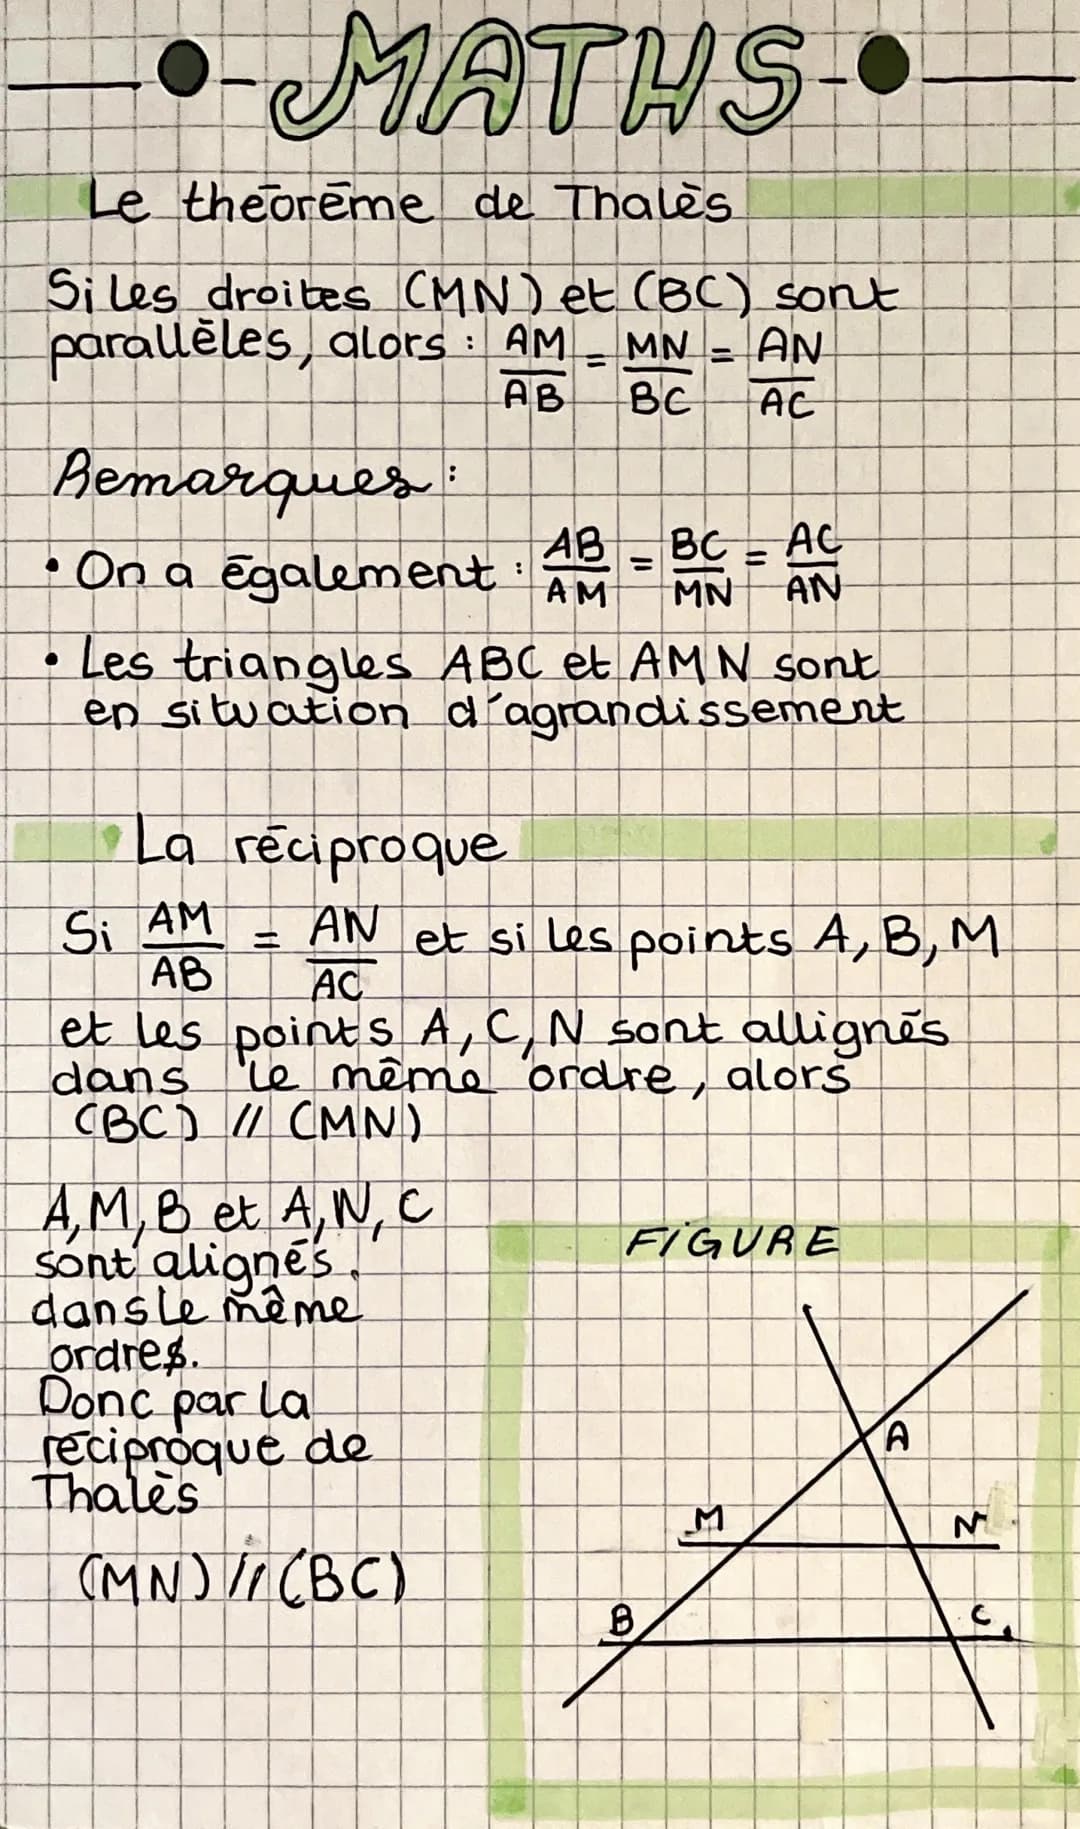 MATHS
Le théorème de Thalès
Si les droites (MN) et (BC) sont
parallèles, alors : AM/AB = MN/BC = AN/AC
Remarques :
• On a également : AB/AM = BC/MN = AC/AN
• Les triangles ABC et AMN sont
en situation d'agrandissement
La réciproque
Si AM/AB = AN/AC et si les points A, B, M
et les points A, C, N sont allignés
dans le même ordre, alors
(BC) // (MN)
A, M, B et A, N, C
sont alignés.
dans le même
ordres.
Donc par la
réciproque de
Thalès
(MN) // (BC)
FIGURE
A
M
N
B
C